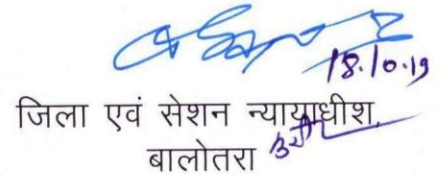 18.10.19
जिला एवं सेशन न्यायाधीश,
बालोतरा